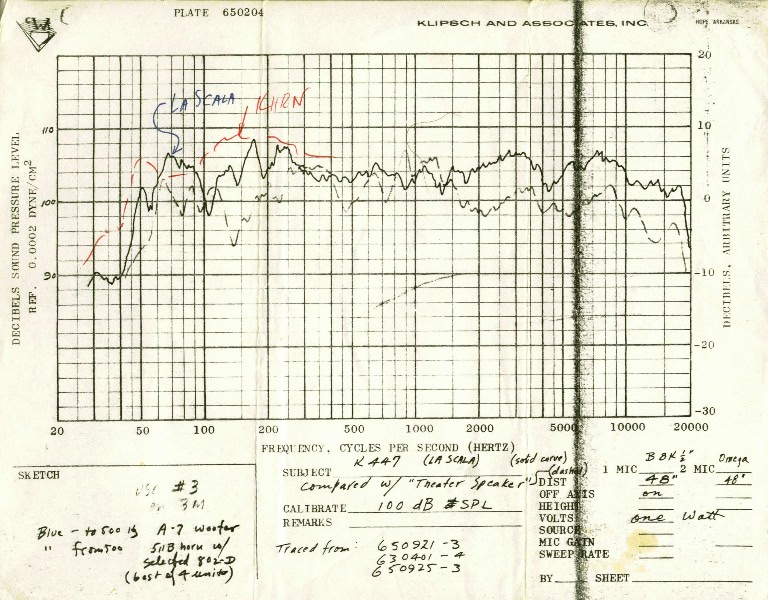 PLATE 650204
KLIPSCH AND ASSOCIATES, INC.
HOPE, ARKANSAS
DECIBELS SOUND PRESSURE LEVEL
REF. 0.0002 DYNE/CM2
110
100
90
LA SCALA
KHRN
20
10
0
-10
-20
-30
DECIBELS, ARBITRARY UNITS
20 50 100 200 500 1000 2000 5000 10000 20000
FREQUENCY, CYCLES PER SECOND (HERTZ)
SKETCH
#3
3M
Blue - to 500 is A-7 woofer
" from 500 511B horn w/
selected 802-D
(best of 4 units)
K447 (LA SCALA) (solid curve)
SUBJECT (dashed)
Compared w/ "Theater Speaker"
CALIBRATE 100 dB #SPL
REMARKS
Traced from: 650921-3
630401-4
650925-3
B&K ½" Omega
1 MIC 2 MIC
DIST 48" 48"
OFF AXIS on
HEIGHT
VOLTS one Watt
SOURCE
MIC GAIN
SWEEP RATE
BY SHEET